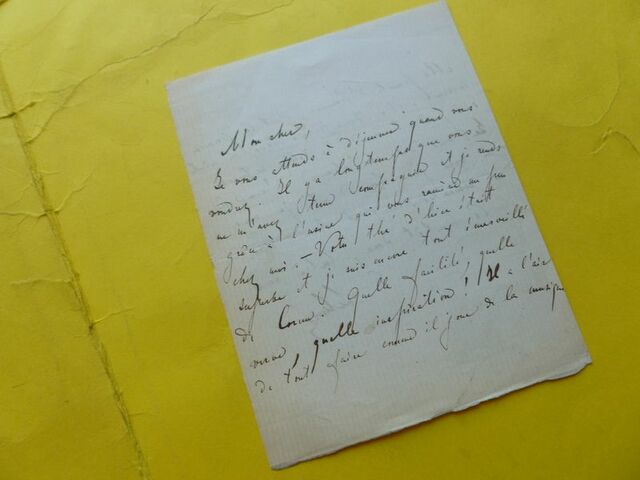 Mon cher,
Je vous attends à déjeuner quand vous
voudrez. Il y a longtemps que vous
ne m'avez tenu compagnie et je rends
grâce à l'usine qui vous ramène un peu
chez moi. – Votre thé d'hier était
superbe et je suis encore tout émerveillé
de Quelle facilité, quelle
verve, quelle inspiration ! Il a l'air
de tout faire comme il joue de la musique